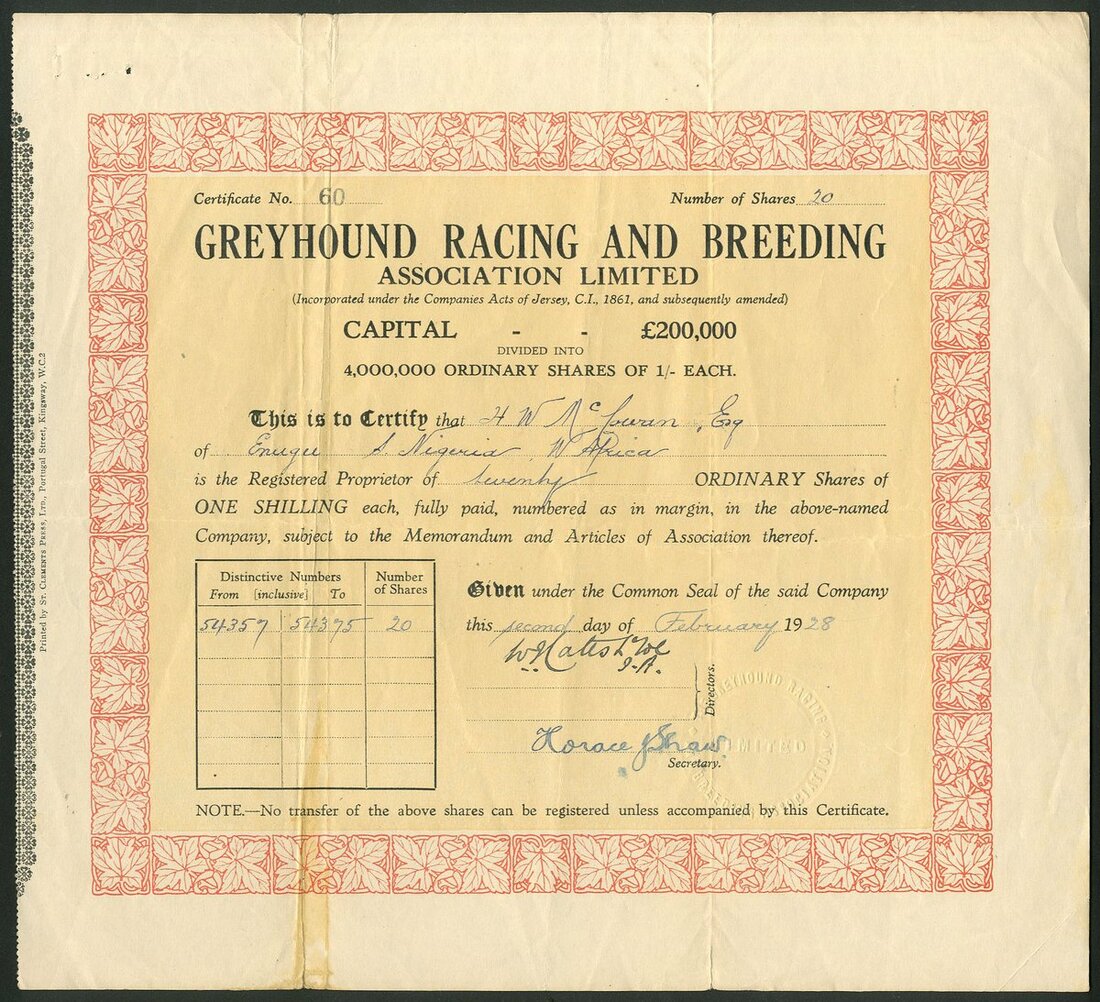 Certificate No. 60 Number of Shares 20
GREYHOUND RACING AND BREEDING
ASSOCIATION LIMITED
(Incorporated under the Companies Acts of Jersey, C.I., 1861, and subsequently amended)
CAPITAL - - £200,000
DIVIDED INTO
4,000,000 ORDINARY SHARES OF 1/- EACH.
This is to Certify that H W McCowan, Esq
of Enugu S. Nigeria, W Africa
is the Registered Proprietor of twenty ORDINARY Shares of
ONE SHILLING each, fully paid, numbered as in margin, in the above-named
Company, subject to the Memorandum and Articles of Association thereof.
Distinctive Numbers Number of Shares
From [inclusive] To
54357 54375 20
Given under the Common Seal of the said Company
this second day of February 1928
Directors.
Horace J Shaw
Secretary.
NOTE.—No transfer of the above shares can be registered unless accompanied by this Certificate.
Printed by St. Clements Press, Ltd., Portugal Street, Kingsway, W.C.2
GREYHOUND RACING
LIMITED